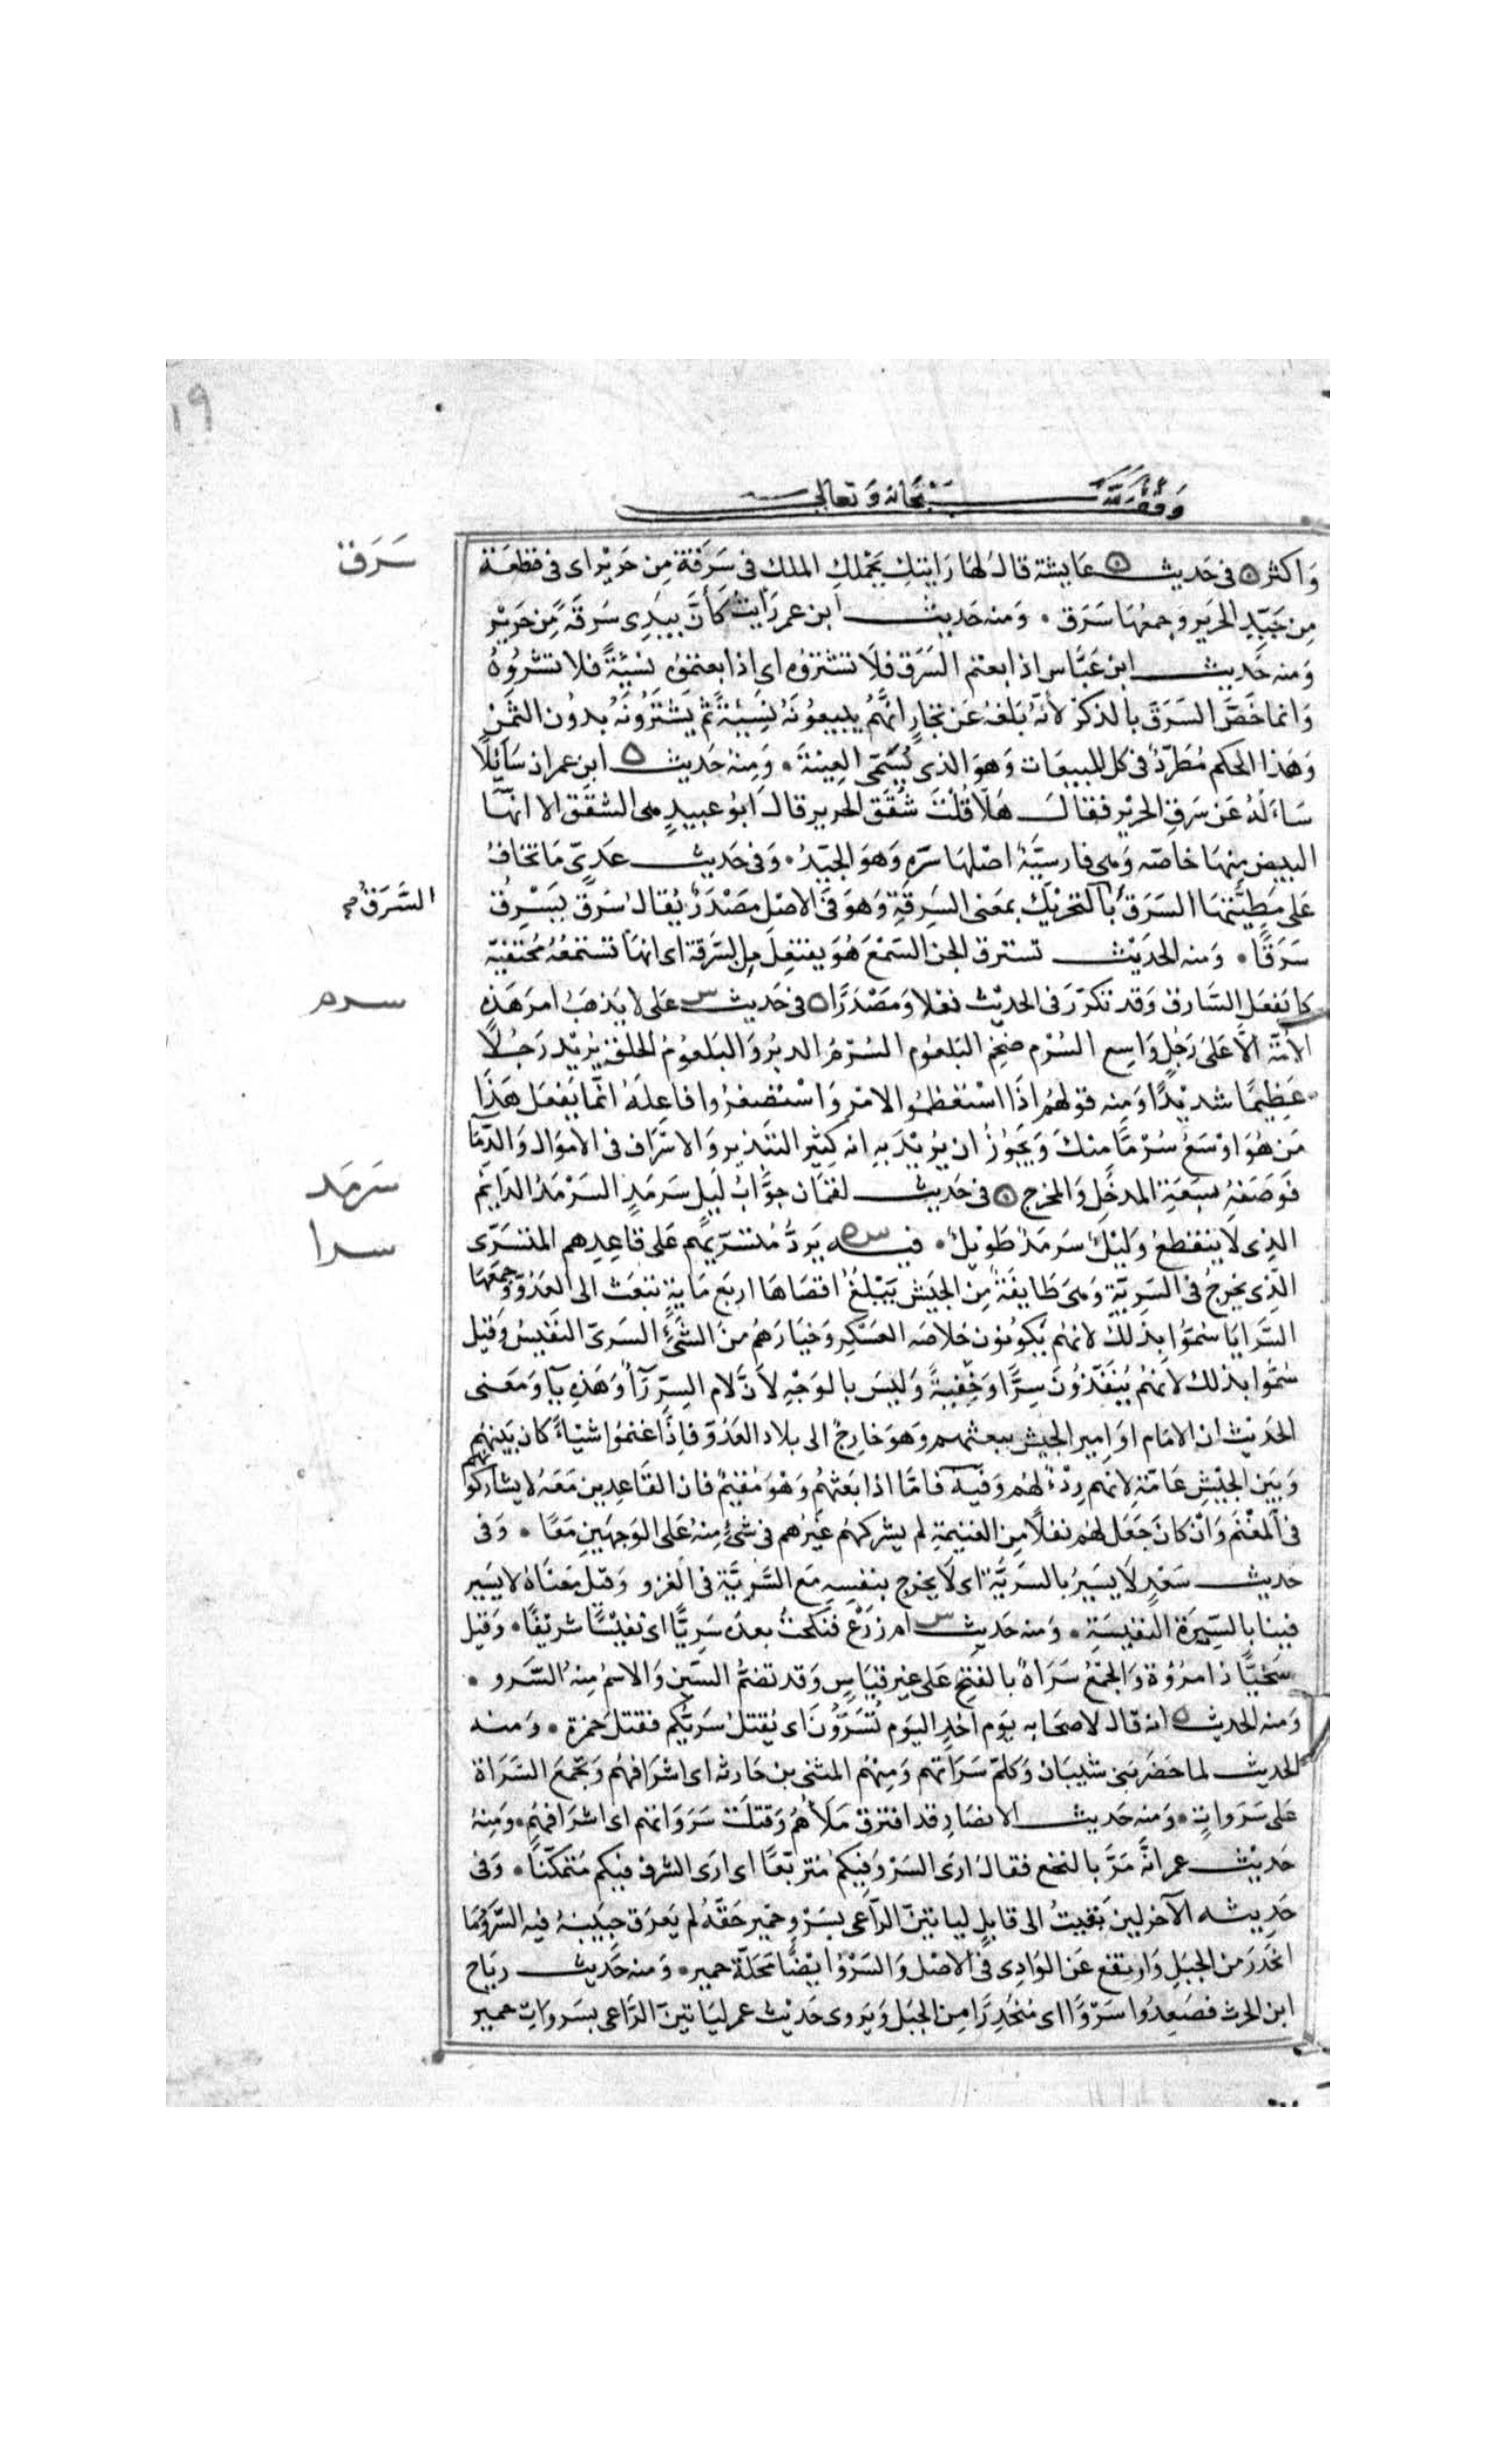 ١٩
وقف لله سبحانه وتعالى
سَرَق
وَاكثر في حَديث عَايشة قالَ لهَا رَايتكِ يَحْملكِ الملك في سَرَقة مِن حَرير اى في قطعَة
مِن جَيّدِ الحَرير وَجمعُهَا سَرَق • وَمنه حَديث ابن عمر رَأيتُ كأنَّ بيَدِى سَرقَةً مِن حَرِيْر
وَمنه حَديث ابن عَبَّاس اذا بعتم السَرَق فلَا تشتروُه اى اذا بعتموُه نسْيَّةً فلا تشتروُهُ
وَانما خَصَّ السَرَقَ بالذكر لأنّهُ بَلغهُ عَن تجارٍ انهَّمُ يبيعوُنَهُ نَسِيْئةً ثمَّ يَشْتَرُونَهُ بدُون الثمَنْ
وَهَذا الحكم مُطَّردٌ في كل المبيعَات وَهوَ الذى يُسَمَّى العِينَةَ • وَمِنهُ حَديث ابن عمر ان سَائِلًا
سَاءَلهُ عَن سَرقِ الحَرْير فقالَ هَلَّا قُلْتَ شُقَق الحرير قالَ ابوُ عبيدٍ هى الشقَق الا انهَّا
البيض مِنهَا خاصّه وَهى فارسيَّةٌ اصْلهَا سَرَه وَهوَ الجيّدُ • وَفى حَديث عَدىّ مَا تخافُ
السَّرَقُ
عَلى مَطِيَّتهَا السَرَق بالتحْريْك بمَعنى السَرِقةِ وَهوَ فى الاصْل مَصْدَرٌ يُقالُ سَرَقَ يَسْرِقُ
سَرَقًا • وَمنه الحَديْث تسترق الجن السَمْعَ هُوَ يفتعِلُ مِن السَّرقَة اى انهَا تستمعُهُ مُختفيّة
سرم
كما يَفعَل السَّارق وَقد تكرّرَ فى الحديْث فعْلا وَمَصْدَرًا فى حَديث عَلى لا يَذهَبُ امر هَذِهِ
الامّة الّا عَلىَ رَجُلٍ وَاسِع السُرْم ضخِمِ البَلعُوم السُرْمُ الدبرُ وَالبَلعوُمُ الحلقُ يُريْد رَجُلاً
عَظِيمًا شديْدًا وَمِنه قولهُم اذَا اسْتعْظمُوا الامْر وَاسْتصْغرُوا فاعِلَهُ انّما يَفعَل هَذَا
مَن هُوَ اوْسَعُ سُرْمًا منكَ وَيَجُوزُ ان يُريْدَ بِهِ انه كثيْر التبْذير وَالاسْرَاف فى الاموَال وَالدِّمَا
سَرمَد
فَوَصَفهُ بسَعَةِ المدخَلِ وَالمخرج فى حَديث لقمَان جوَّابُ لَيلٍ سَرمَدٍ السَرْمَدُ الدَايمُ
سرا
الذِى لا ينقطعُ وَليْلٌ سَرمَدٌ طَوِيْلٌ • فيه يَردُّ مُتسَرّيهُم عَلى قاعِدِهم المتسَرّى
الّذِى يخرُجُ فى السَرِيّةِ وَهىَ طَايفَةٌ مِن الجَيش يَبْلغُ اقصَاهَا اربَع مَايةٍ تبعَث الى العَدُوّ وَجمعهَا
السَّرايَا سُموُّا بذلكَ لانهُم يَكونوُن خلاصَه العَسْكرِ وَخيَارَهُم منَ الشَئِ السَرىّ النَفيسُ وَقيل
سُمُّوا بذلك لانهُم يُنفَذُونَ سِرًّا وَخُفِيةً وَليسَ بالوَجْهِ لأنَّ لام السِرّ رَآءٌ وَهَذِهِ يآء وَمَعنى
الحَديْث ان الامَام اوَ امِير الجيش يبعثهم وَهوَ خَارجٌ الى بلاد العَدُوّ فإذَا غنموُا شيْاءً كان بَينهُم
وَبَين الجيْشِ عَامّةً لانهم رِدْءٌ لهُم وَفيَة فامَّا اذا بَعثهُم وَهْوَ مُقيْمٌ فان القَاعِدِين مَعَهُ لا يشاركونهم
فى المغْنَم وَانْ كانَ جَعَل لهُم نفلاً مِن الغنيمةِ لم يشركهُم غَيْرُهم فى شئٍ مِنهُ عَلى الوَجهَين مَعًا • وَفى
حَديث سَعْدٍ لَا يَسِيْرُ بالسَرِيَّة اى لَا يَخرج بنفسِهِ مَع السَّرِيَّة فى الغَزو وَقيْل مَعْنَاهُ لا يَسِير
فينا بالسّيرَة النَفيسَةِ • وَمنه حَديث ام زَرْع فنكحتُ بعدَه سَرِيًّا اىْ نفيْسًا شريْفًا • وَقيْل
سَخيًّا ذا مرُوُة وَالجَمْعُ سَرَاةٌ بالفتح عَلى غير قيَاسٍ وَقد تضمُّ السّين وَالاسْمُ مِنهُ السَّرو •
وَمنه الحَديث انه قال لاصحَابه يَوم احُدٍ اليَوم تُسَرَّوْنَ اى يُقتلُ سَريُّكُم فقتلَ حَمزة • وَمنه
الحَديث لما حَضَرَ بَنى شيبَان وَكلّمَ سَرَاتهم وَمِنْهُم المثنى بن حَارثه اى اشْرَافهُم وَتجمَع السَرَاة
عَلى سَرَواتٍ • وَمنه حَديث الانصَارِ قد افترق مَلَأُهُم وَقتلَتْ سَرَوَاتهم اى اشرَافهُم • وَمِنهُ
حَديْث عمر انَّه مَرَّ بالنخع فقال ارَى السَرْوَ فيكم مُتربّعًا اى ارَى الشرفَ فيكم مُتمكّنًا • وَفى
حَدِيثه الآخر لين بَقيتُ الى قابلٍ ليَاتينّ الرَّاعىَ بسَرْوِ حمْير حَقَّهُ لم يَعرَق جبيْنهُ فيْه السَّروُ مَا
انحَدَرَ من الجبَلِ وَارتفع عَن الوَادِى فى الاصْل وَالسَرْوُ ايْضًا مَحَلّة حمير • وَمنه حَديث رِيَاح
ابن الحرث فصَعِدُوا سَرْوًا اى مُنحَدِرًا مِنَ الجَبَل وَيَروى حَديْث عمر ليَاتينّ الرَّاعى بسَروَاتِ حمير